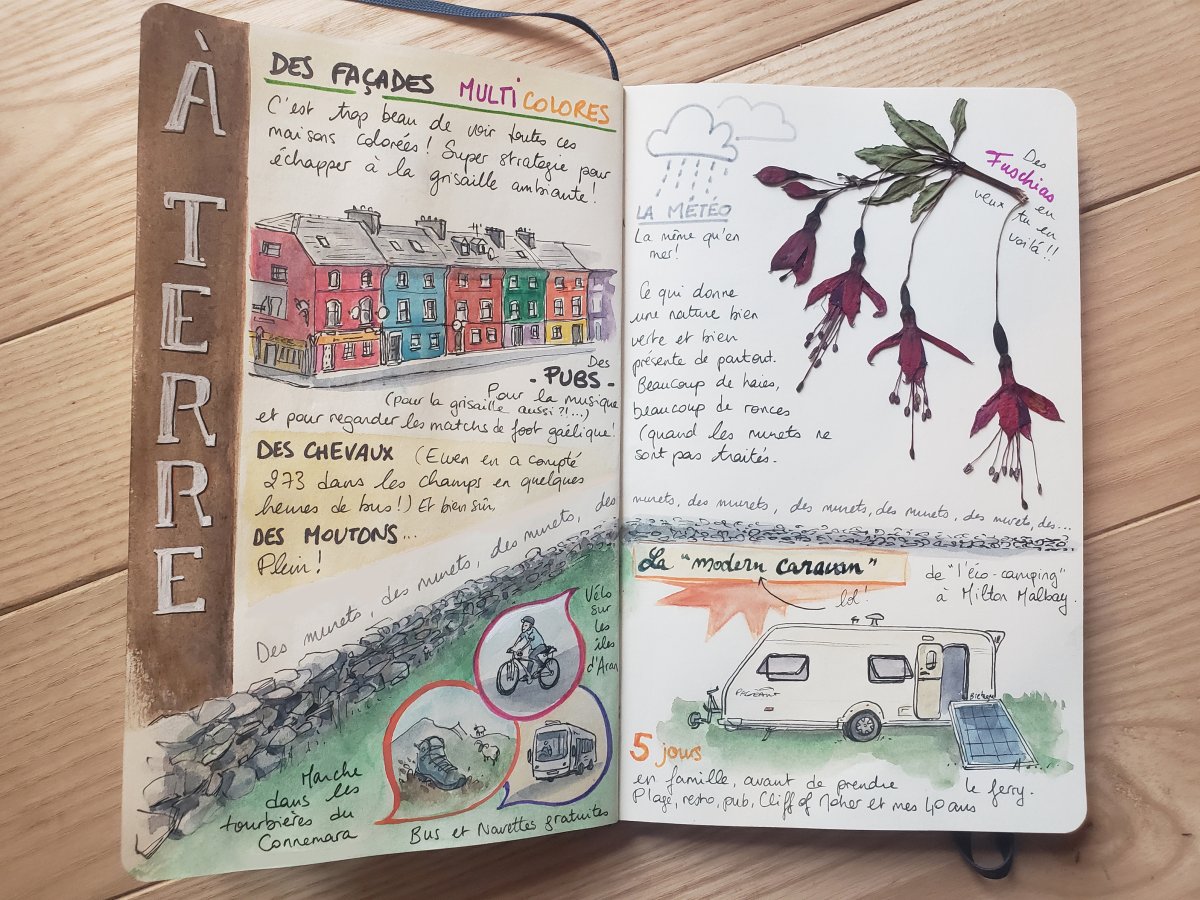 À TERRE
DES FAÇADES MULTICOLORES
C'est trop beau de voir toutes ces
maisons colorées! Super strategie pour
échapper à la grisaille ambiante!
Des
- PUBS -
Pour la musique
(pour la grisaille aussi ?!...)
et pour regarder les matchs de foot gaélique!
DES CHEVAUX (Ewen en a compté
273 dans les champs en quelques
heures de bus!) Et bien sûr,
DES MOUTONS...
Plein!
Des murets, des murets, des murets, des
Vélo
sur
les
îles
d'Aran
Marche
dans les
tourbières du
Connemara
Bus et Navettes gratuites
LA MÉTÉO
La même qu'en
mer!
Ce qui donne
une nature bien
verte et bien
présente de partout.
Beaucoup de haies,
beaucoup de ronces
(quand les murets ne
sont pas traités.
Des
Fuschias
en
veux tu en
voilà!!
murets, des murets, des murets, des murets, des murets, des...
La "modern caravan"
lol!
de "l'éco-camping"
à Milton Malbay.
PAGEANT
Bretagne
5 jours
en famille, avant de prendre
le ferry.
Plage, resto, pub, Cliff of Moher et mes 40 ans